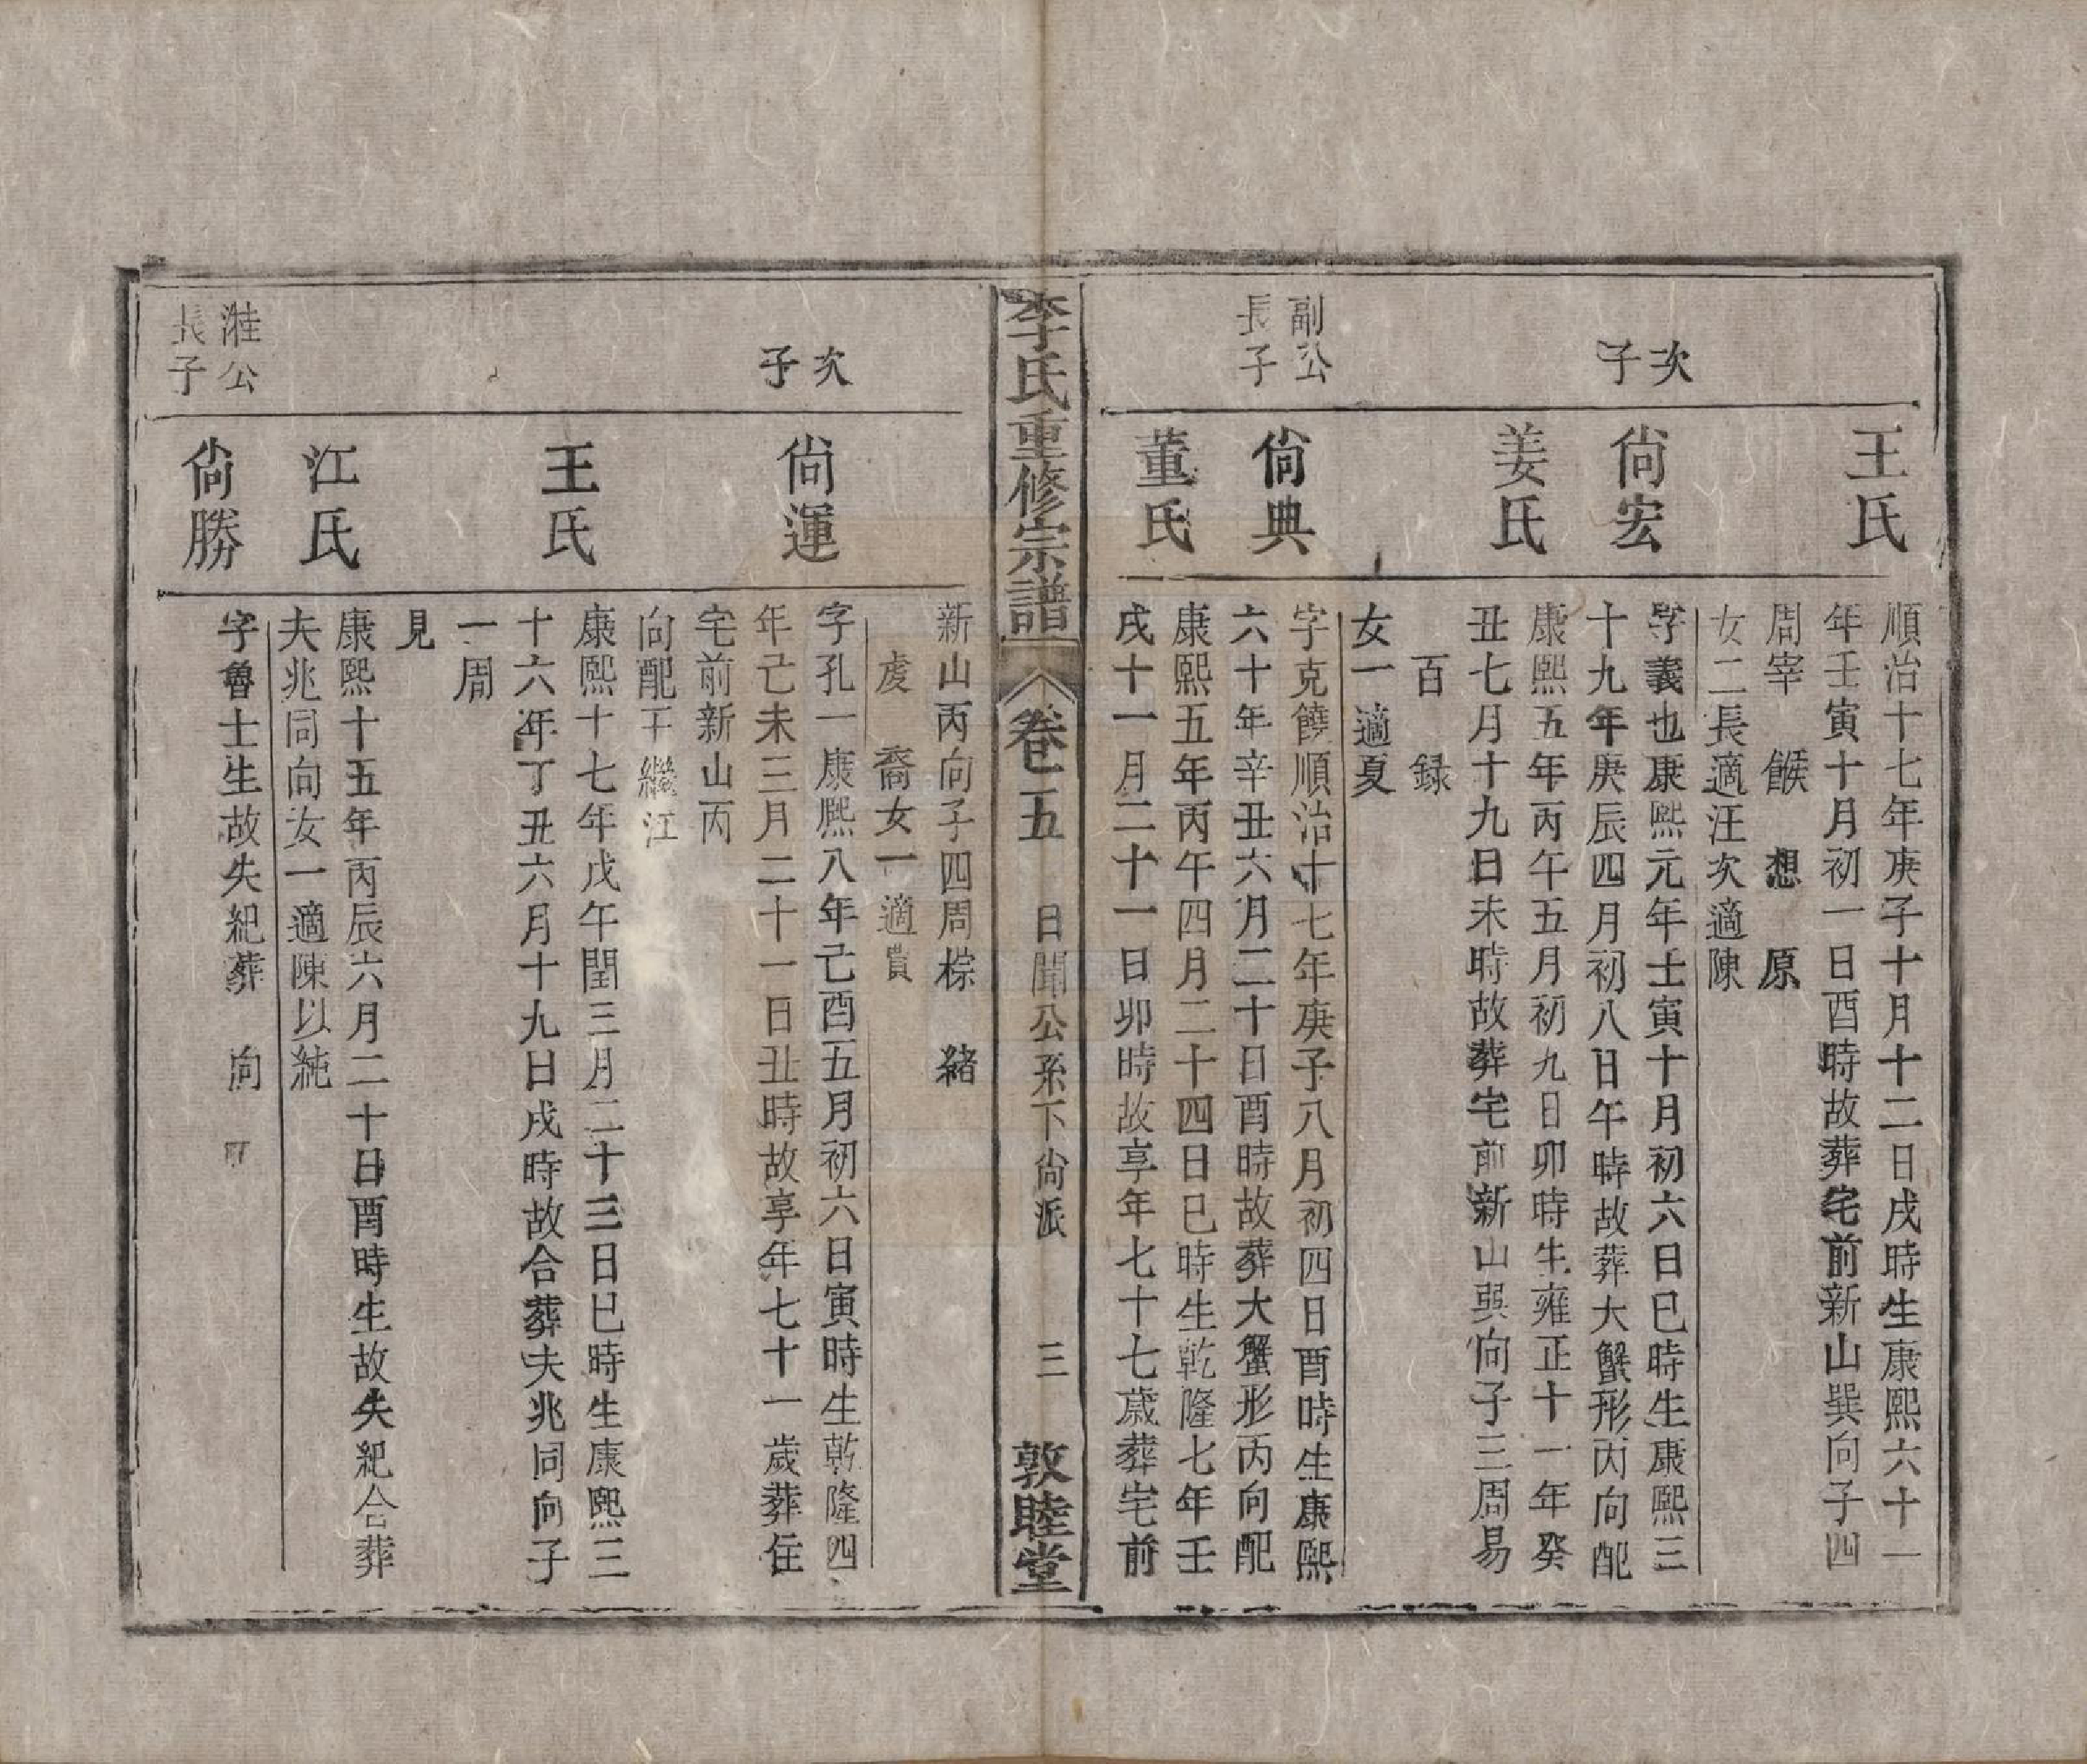 王氏
順治十七年庚子十月十二日戌時生康熙六十一
年壬寅十月初一日酉時故葬宅前新山巽向子四
周宰 餱 想 原
女二長適汪次適陳
次子
尙宏
字義也康熙元年壬寅十月初六日巳時生康熙三
十九年庚辰四月初八日午時故葬大蟹形丙向配
姜氏
康熙五年丙午五月初九日卯時生雍正十一年癸
丑七月十九日未時故葬宅前新山巽向子三周易
百 録
女一適夏
副公長子
尙典
字克饒順治十七年庚子八月初四日酉時生康熙
六十年辛丑六月二十日酉時故葬大蟹形丙向配
董氏
康熙五年丙午四月二十四日巳時生乾隆七年壬
戌十一月二十一日卯時故享年七十七歳葬宅前
李氏重修宗譜 卷二五 日聞公系下尙派 三 敦睦堂
新山丙向子四周棕 緒
虔 裔女一適
次子
尙運
字孔一康熙八年己酉五月初六日寅時生乾隆四
年己未三月二十一日丑時故享年七十一歲葬住
宅前新山丙
向配王繼江
王氏
康熙十七年戊午閏三月二十三日巳時生康熙三
十六年丁丑六月十九日戌時故合葬夫兆同向子
一周
見
江氏
康熙十五年丙辰六月二十日酉時生故失紀合葬
夫兆同向女一適陳以純
公長子
尙勝
字魯士生故失紀葬 向